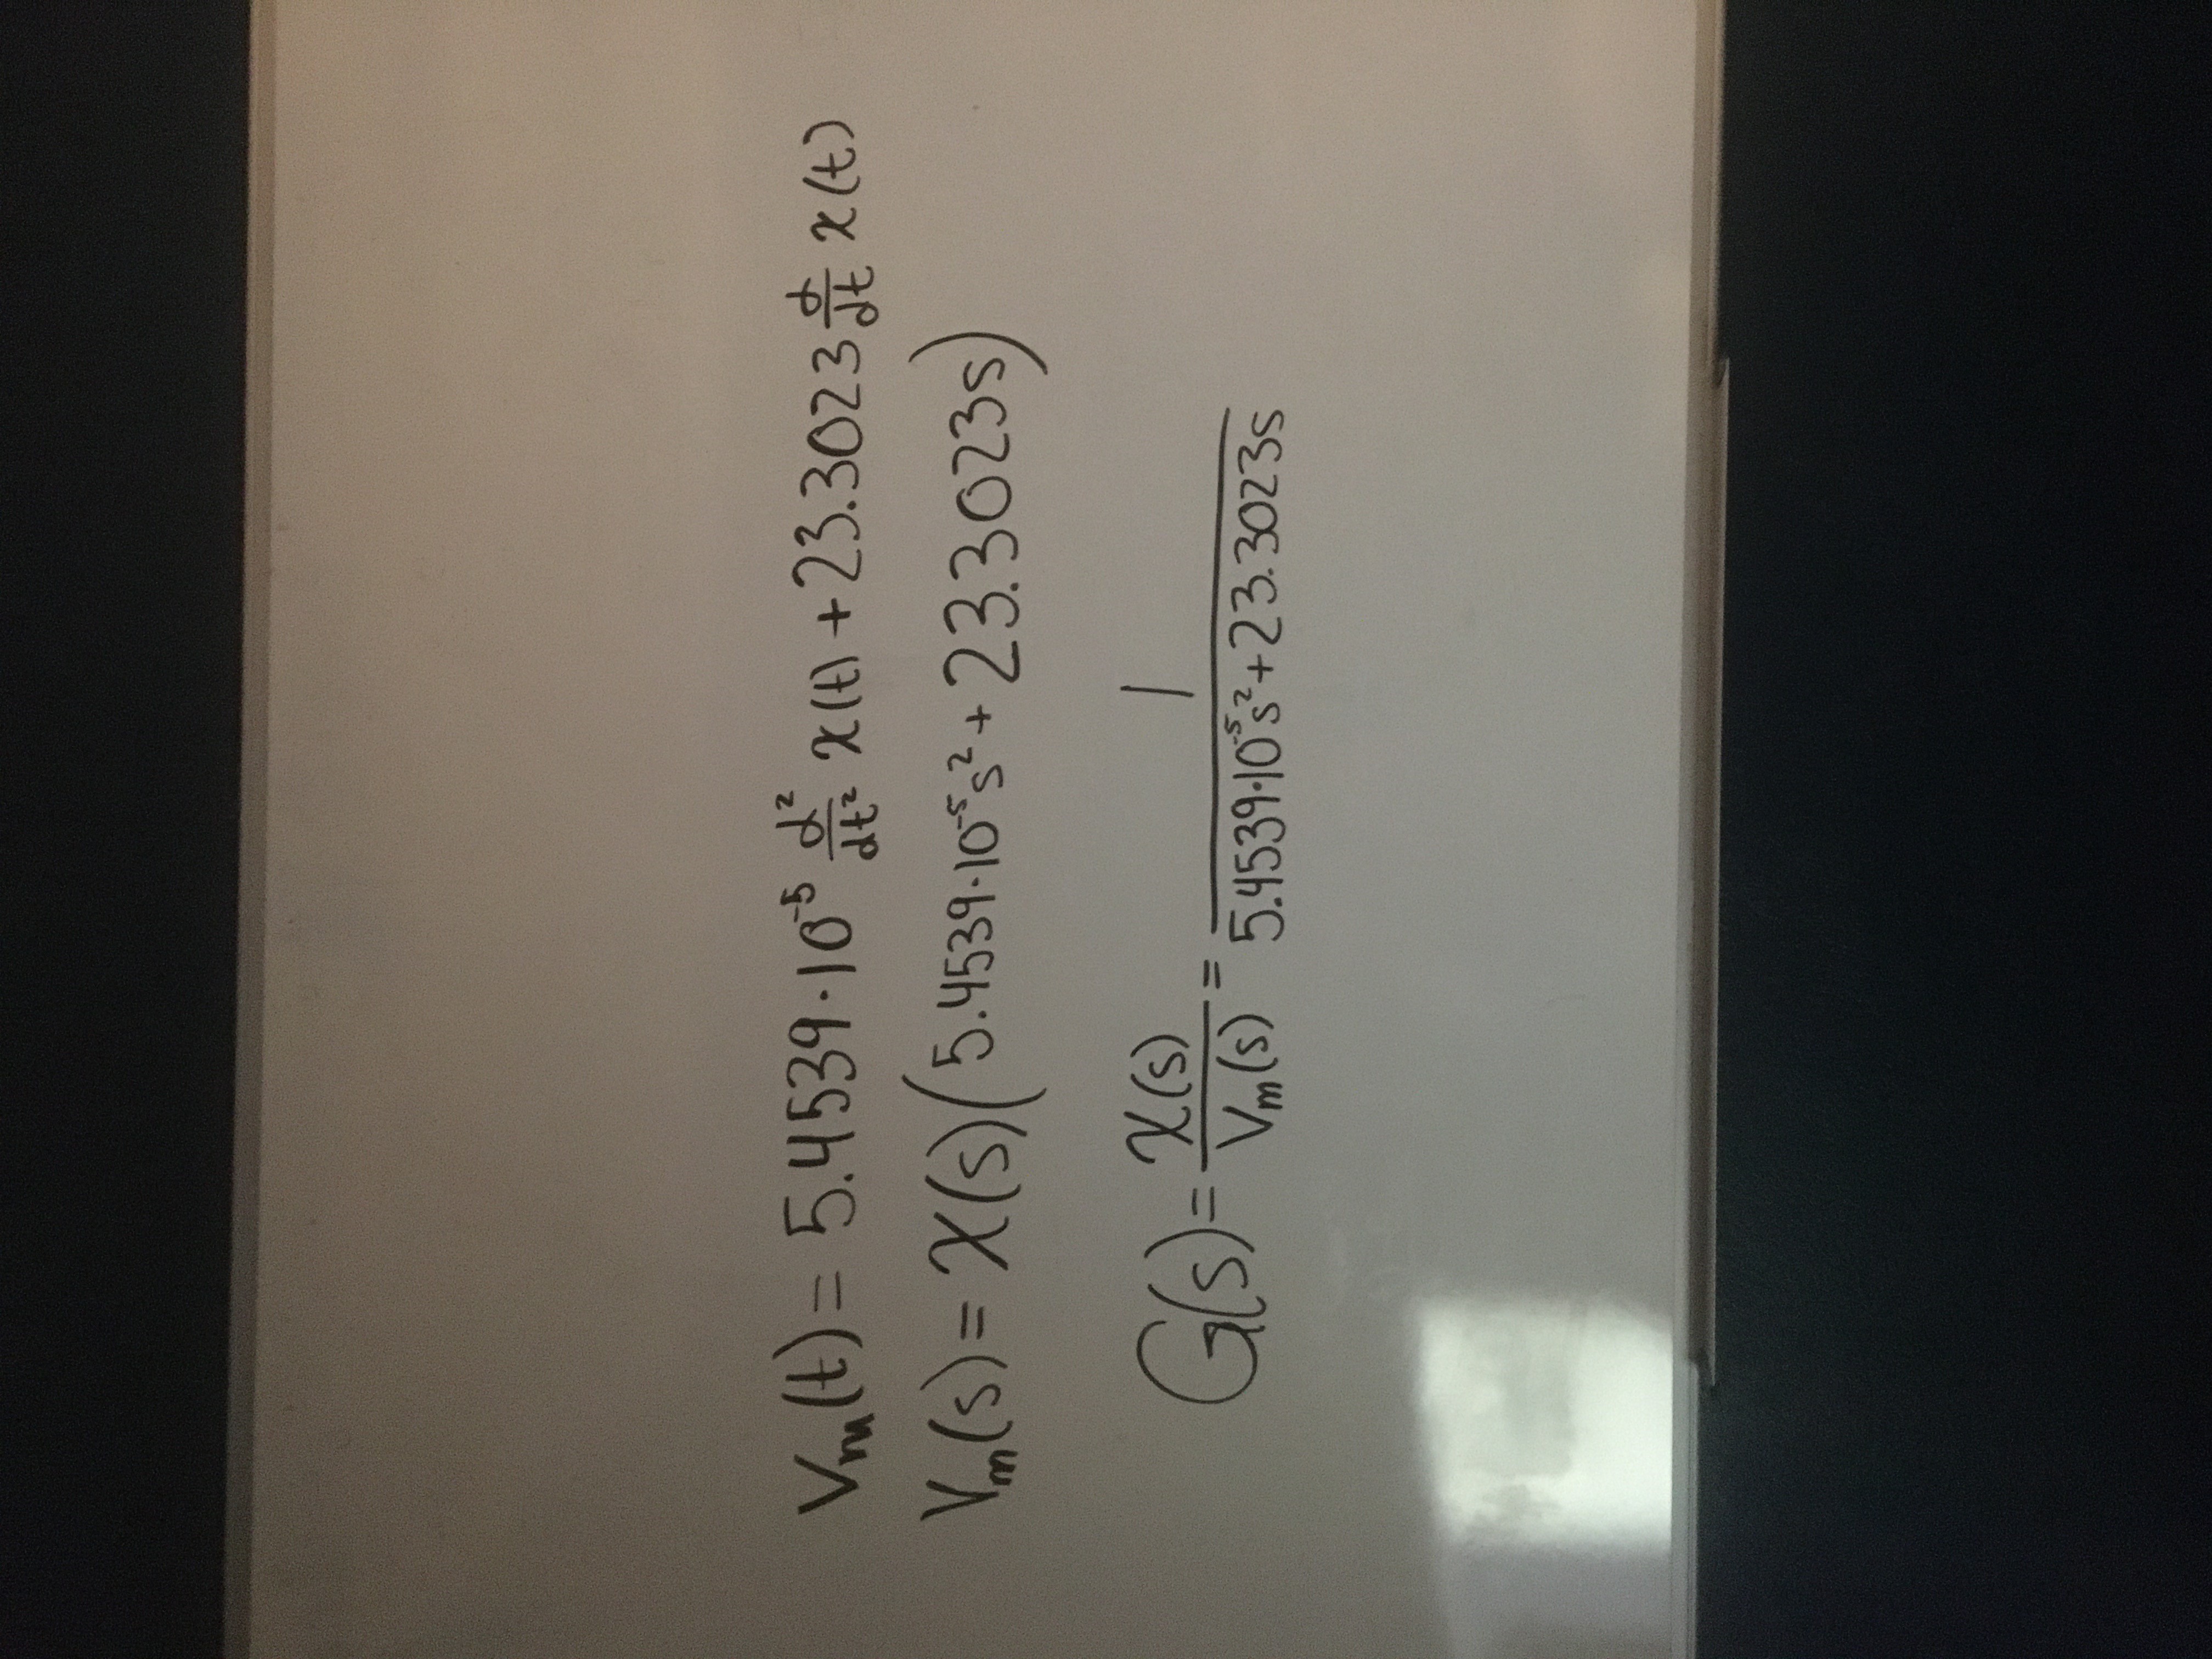 Vm(t) = 5.4539·10⁻⁵ d²/dt² x(t) + 23.3023 d/dt x(t)
Vm(s) = X(s)(5.4539·10⁻⁵s² + 23.3023s)
G(s) = X(s)/Vm(s) = 1/5.4539·10⁻⁵s²+23.3023s